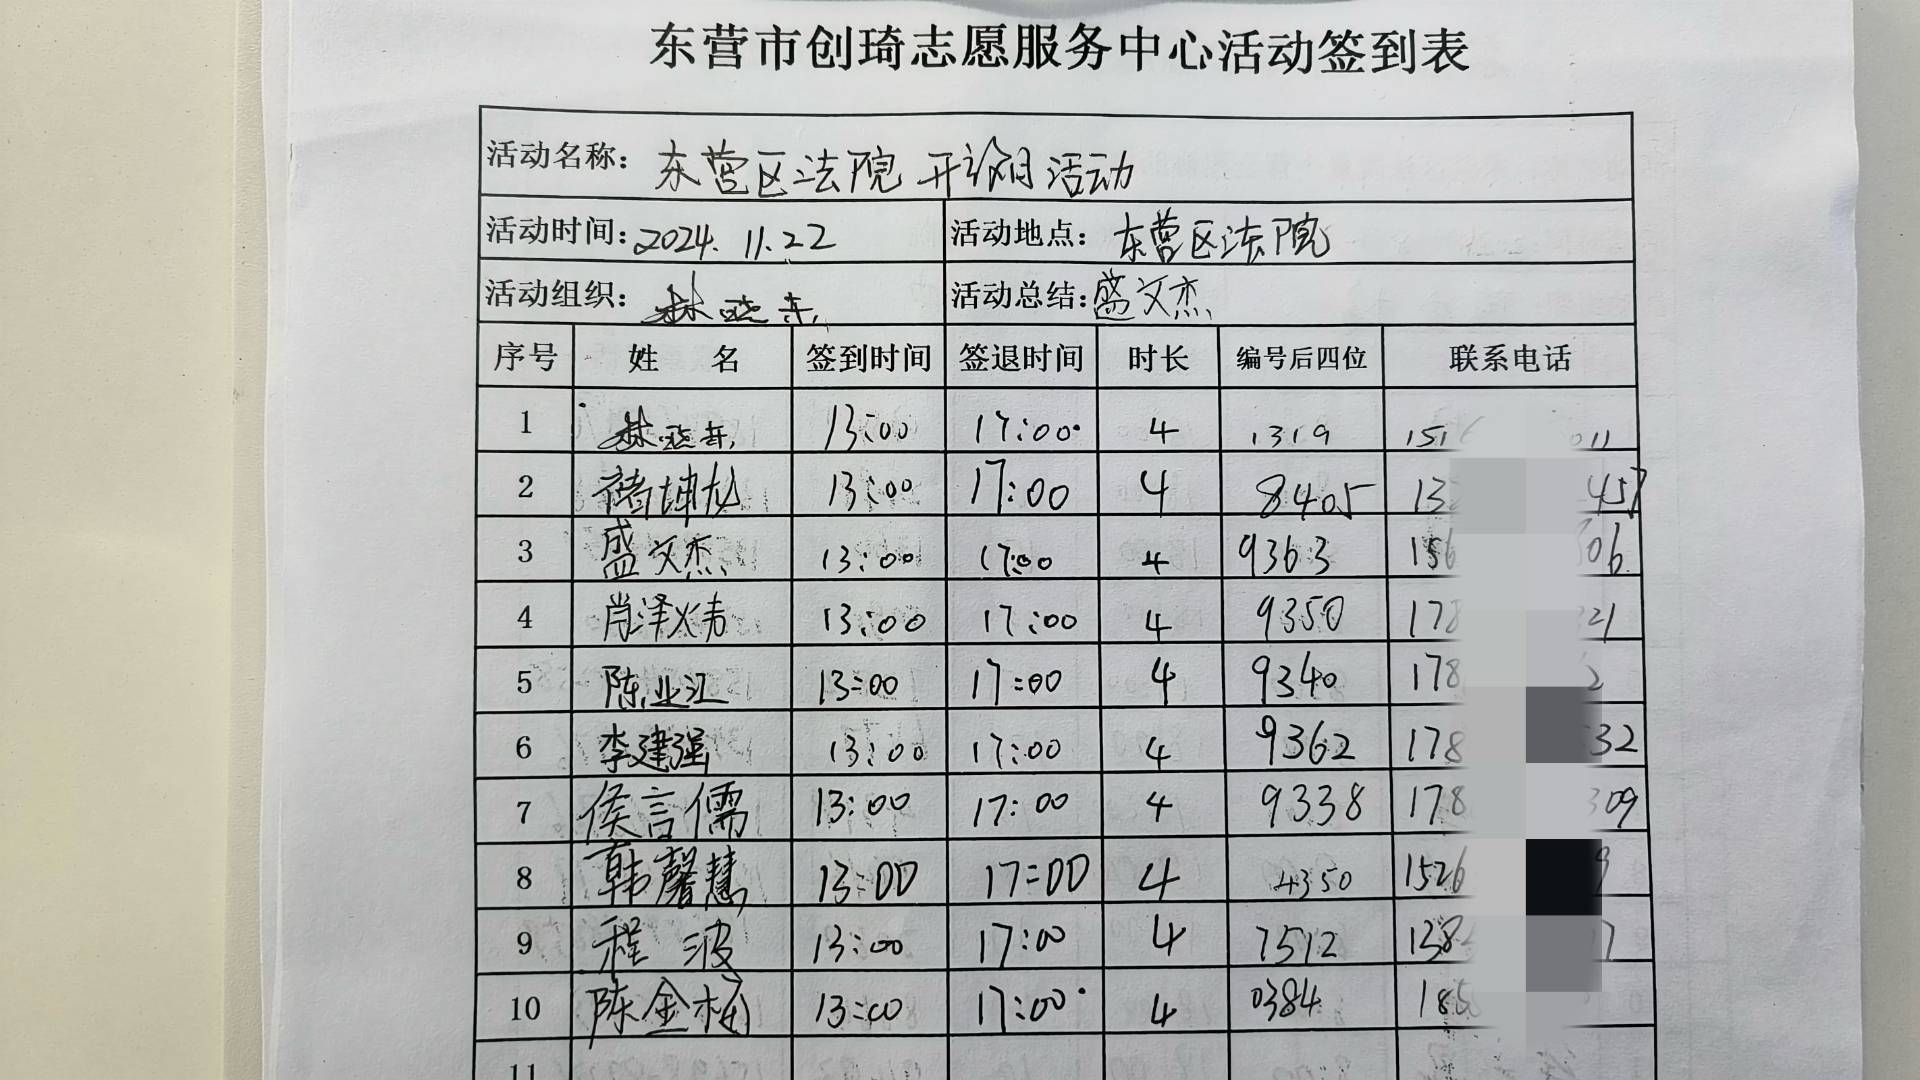 东营市创琦志愿服务中心活动签到表
活动名称: 东营区法院开放日活动
活动时间: 2024.11.22 活动地点: 东营区法院
活动组织: 林晓东 活动总结: 盛文杰
序号 姓 名 签到时间 签退时间 时长 编号后四位 联系电话
1 林晓东 13:00 17:00 4 1319 151 011
2 褚坤龙 13:00 17:00 4 8405 13 457
3 盛文杰 13:00 17:00 4 9363 156 06
4 肖泽炜 13:00 17:00 4 9350 178 21
5 陈业江 13:00 17:00 4 9340 178 2
6 李建强 13:00 17:00 4 9362 178 32
7 侯言儒 13:00 17:00 4 9338 178 309
8 韩馨慧 13:00 17:00 4 4350 1526 9
9 程波 13:00 17:00 4 7512 138 7
10 陈金柱 13:00 17:00 4 0384 185
11